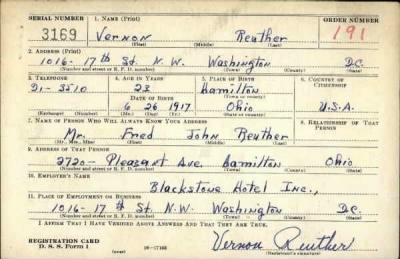 SERIAL NUMBER 1. NAME (Print) ORDER NUMBER
3169 Vernon Reuther 191
(First) (Middle) (Last)
2. ADDRESS (Print)
1016- 17th St. N.W. Washington D.C.
(Number and street or R. F. D. number) (Town) (County) (State)
3. TELEPHONE 4. AGE IN YEARS 5. PLACE OF BIRTH 6. COUNTRY OF CITIZENSHIP
DI-5510 23 Hamilton
DATE OF BIRTH (Town or county)
6 26 1917 Ohio U.S.A.
(Exchange) (Number) (Mo.) (Day) (Yr.) (State or country)
7. NAME OF PERSON WHO WILL ALWAYS KNOW YOUR ADDRESS 8. RELATIONSHIP OF THAT PERSON
Mr. Fred John Reuther
(Mr., Mrs., Miss) (First) (Middle) (Last)
9. ADDRESS OF THAT PERSON
2720- Pleasant Ave. Hamilton Ohio
(Number and street or R. F. D. number) (Town) (County) (State)
10. EMPLOYER'S NAME
Blackstone Hotel Inc.,
11. PLACE OF EMPLOYMENT OR BUSINESS
1016-17th St. N.W. Washington D.C.
(Number and street or R. F. D. number) (Town) (County) (State)
I AFFIRM THAT I HAVE VERIFIED ABOVE ANSWERS AND THAT THEY ARE TRUE.
REGISTRATION CARD
D. S. S. Form 1 (over) 16-17105 Vernon Reuther
(Registrant's signature)